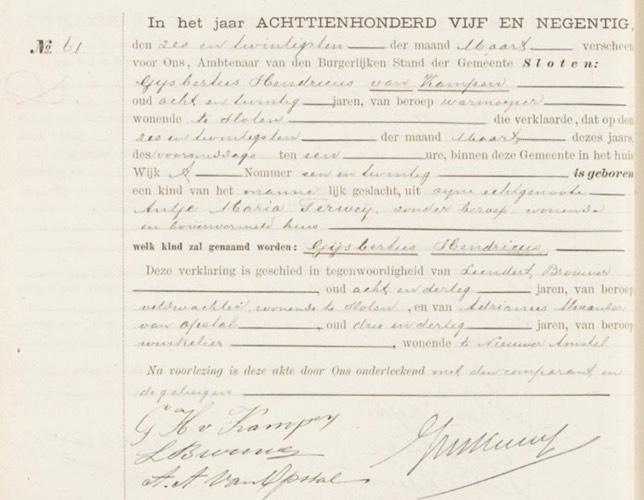 In het jaar ACHTTIENHONDERD VIJF EN NEGENTIG,
№ 61
den zes en twintigsten der maand Maart verscheen
voor Ons, Ambtenaar van den Burgerlijken Stand der Gemeente Sloten:
Gijsbertus Hendricus van Kampen
oud acht en twintig jaren, van beroep warmoezier
wonende te Sloten die verklaarde, dat op den
zes en twintigsten der maand Maart dezes jaars,
des voormiddags ten een ure, binnen deze Gemeente in het huis
Wijk A Nommer een en twintig is geboren
een kind van het manne lijk geslacht, uit zijne echtgenoote
Antje Maria Terwey, zonder beroep wonende
in bovenvermeld huis
welk kind zal genaamd worden: Gijsbertus Hendricus
Deze verklaring is geschied in tegenwoordigheid van Leendert Brouwer
, oud acht en dertig jaren, van beroep
veldwachter, wonende te Sloten, en van Adrianus Alexander
van Opstal, oud drie en dertig jaren, van beroep
winkelier, wonende te Nieuwer Amstel
Na voorlezing is deze akte door Ons onderteekend met den comparant en
de getuigen
G H v Kampen
L Brouwer
A. A. Van Opstal